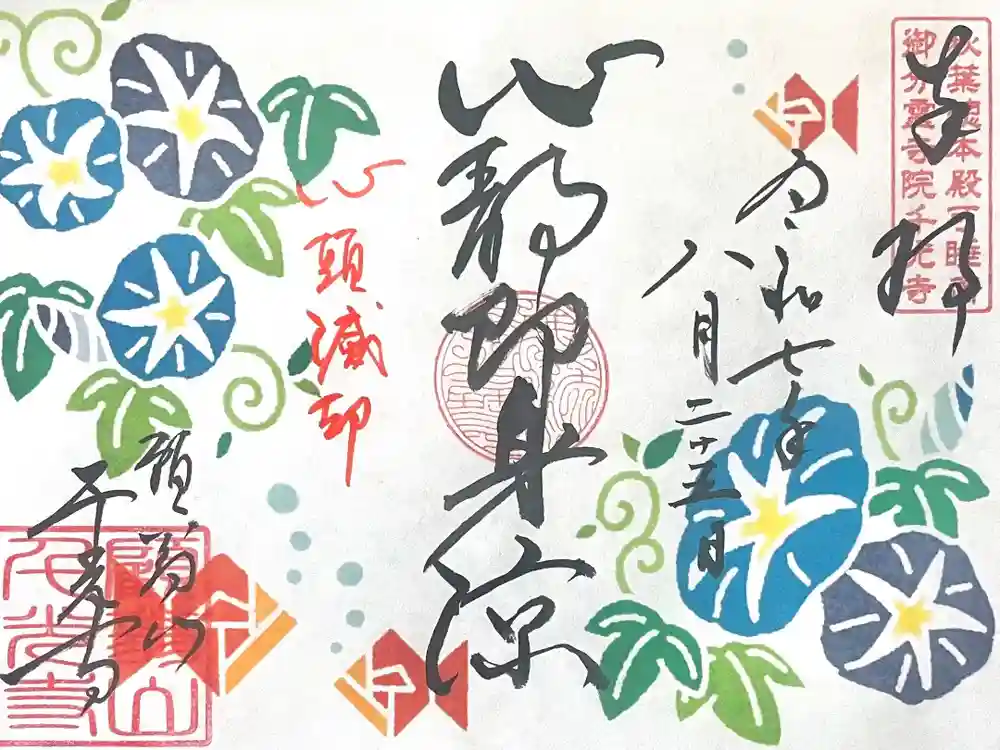 秋葉總本殿可睡斎
御分霊寺院千光寺
奉拝
令和七年
八月二十五日
心静即身涼
心頭滅却
千光寺